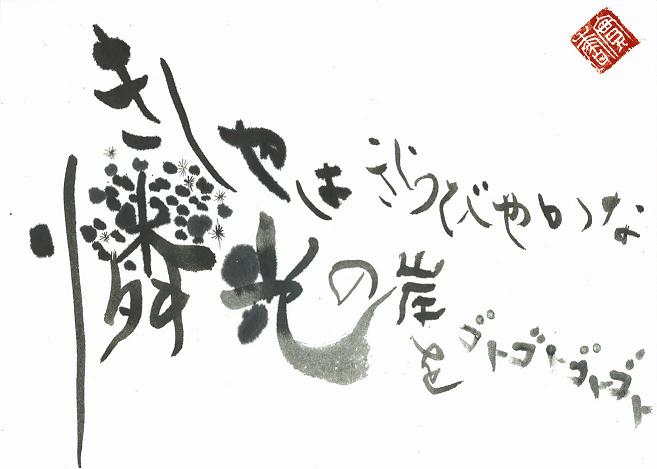 きしやはきらびやかな
燐光の岸をゴトゴトゴトゴト